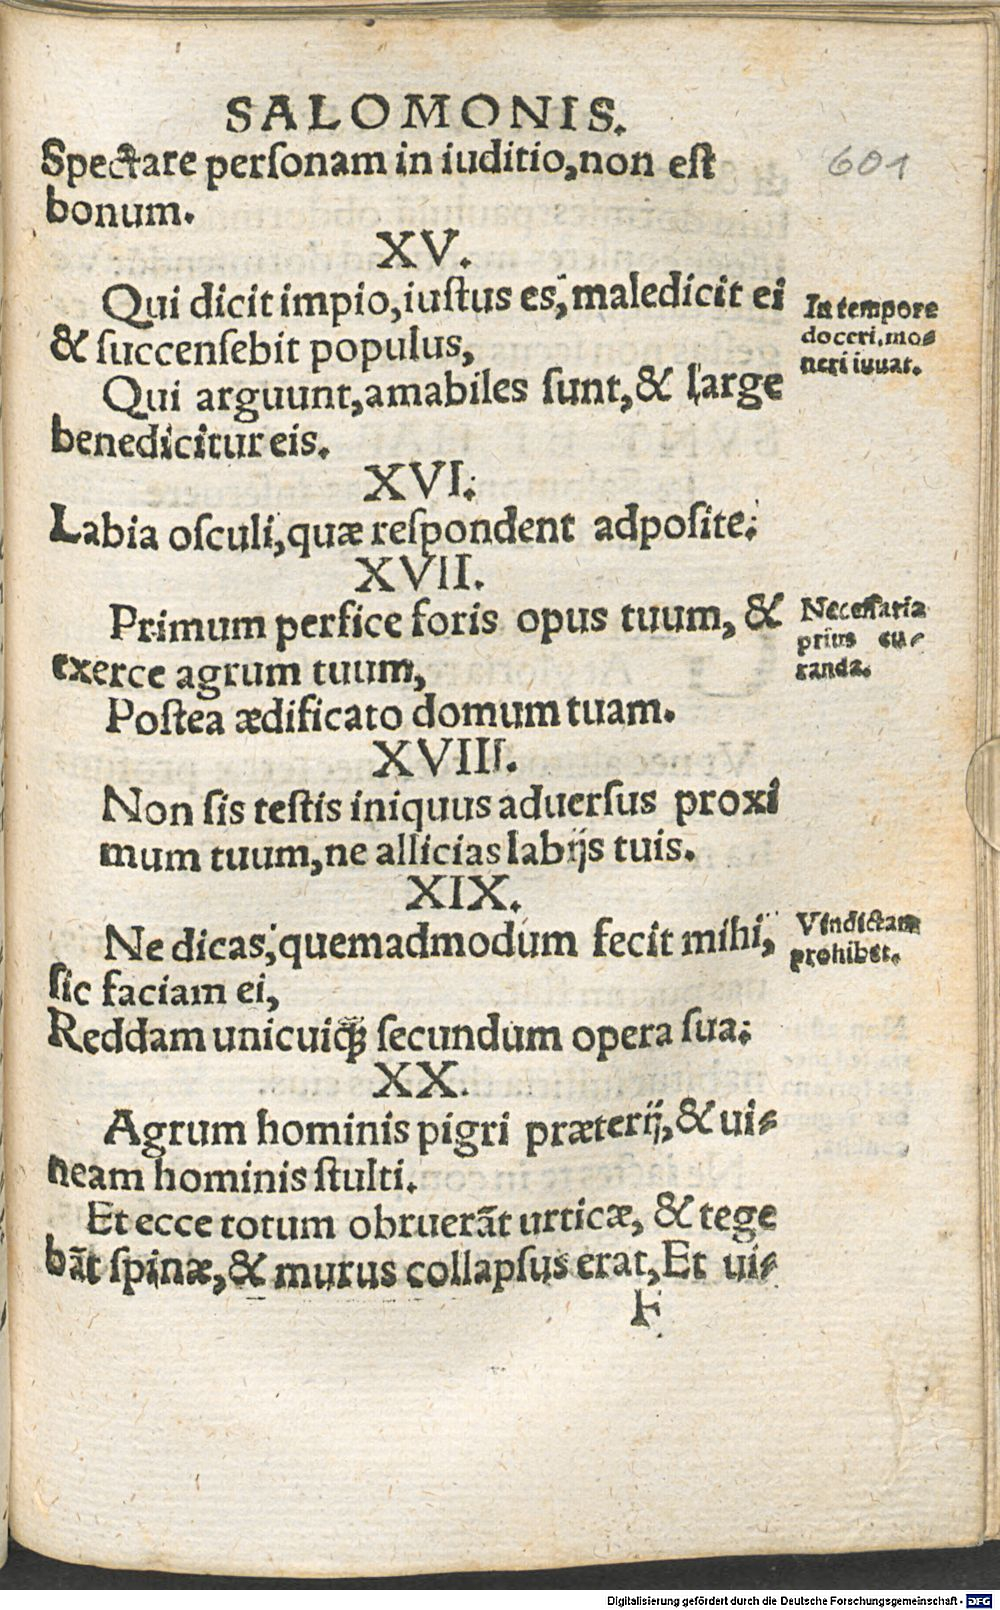 SALOMONIS.
601
Spectare personam in iuditio, non est
bonum.
XV.
Qui dicit impio, iustus es, maledicit ei
& succensebit populus,
In tempore
doceri, mo-
neri iuuat.
Qui arguunt, amabiles sunt, & large
benedicitur eis.
XVI.
Labia osculi, quæ respondent adposite.
XVII.
Primum perfice foris opus tuum, &
exerce agrum tuum,
Necessaria
prius cu-
randa.
Postea ædificato domum tuam.
XVIII.
Non sis testis iniquus aduersus proxi
mum tuum, ne allicias labijs tuis.
XIX.
Ne dicas, quemadmodum fecit mihi,
sic faciam ei,
Vindictam
prohibet.
Reddam unicuiq; secundum opera sua.
XX.
Agrum hominis pigri præterij, & ui-
neam hominis stulti.
Et ecce totum obruerãt urticæ, & tege
bãt spinæ, & murus collapsus erat, Et ui-
F
Digitalisierung gefördert durch die Deutsche Forschungsgemeinschaft - DFG